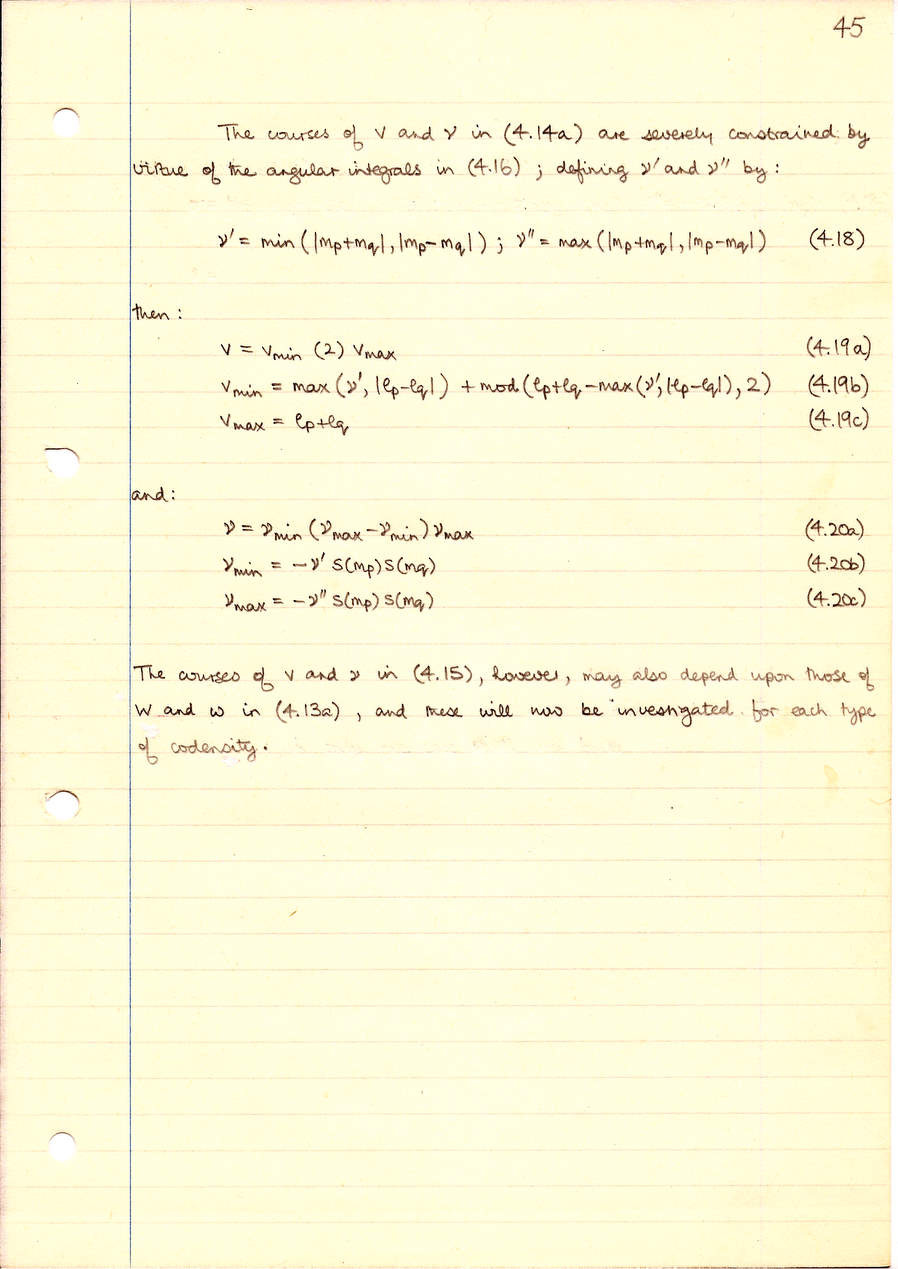 45
The courses of v and ν in (4.14a) are severely constrained by
virtue of the angular integrals in (4.16) ; defining ν′ and ν″ by :
ν′ = min (|mp+mq|, |mp-mq|) ; ν″ = max (|mp+mq|, |mp-mq|) (4.18)
then :
v = vmin (2) vmax (4.19a)
vmin = max (ν′, |ℓp-ℓq|) + mod (ℓp+ℓq-max(ν′, |ℓp-ℓq|), 2) (4.19b)
vmax = ℓp+ℓq (4.19c)
and :
ν = νmin (νmax-νmin) νmax (4.20a)
νmin = -ν′ S(mp) S(mq) (4.20b)
νmax = -ν″ S(mp) S(mq) (4.20c)
The courses of v and ν in (4.15), however, may also depend upon those of
W and ω in (4.13a) , and these will now be investigated for each type
of codensity.